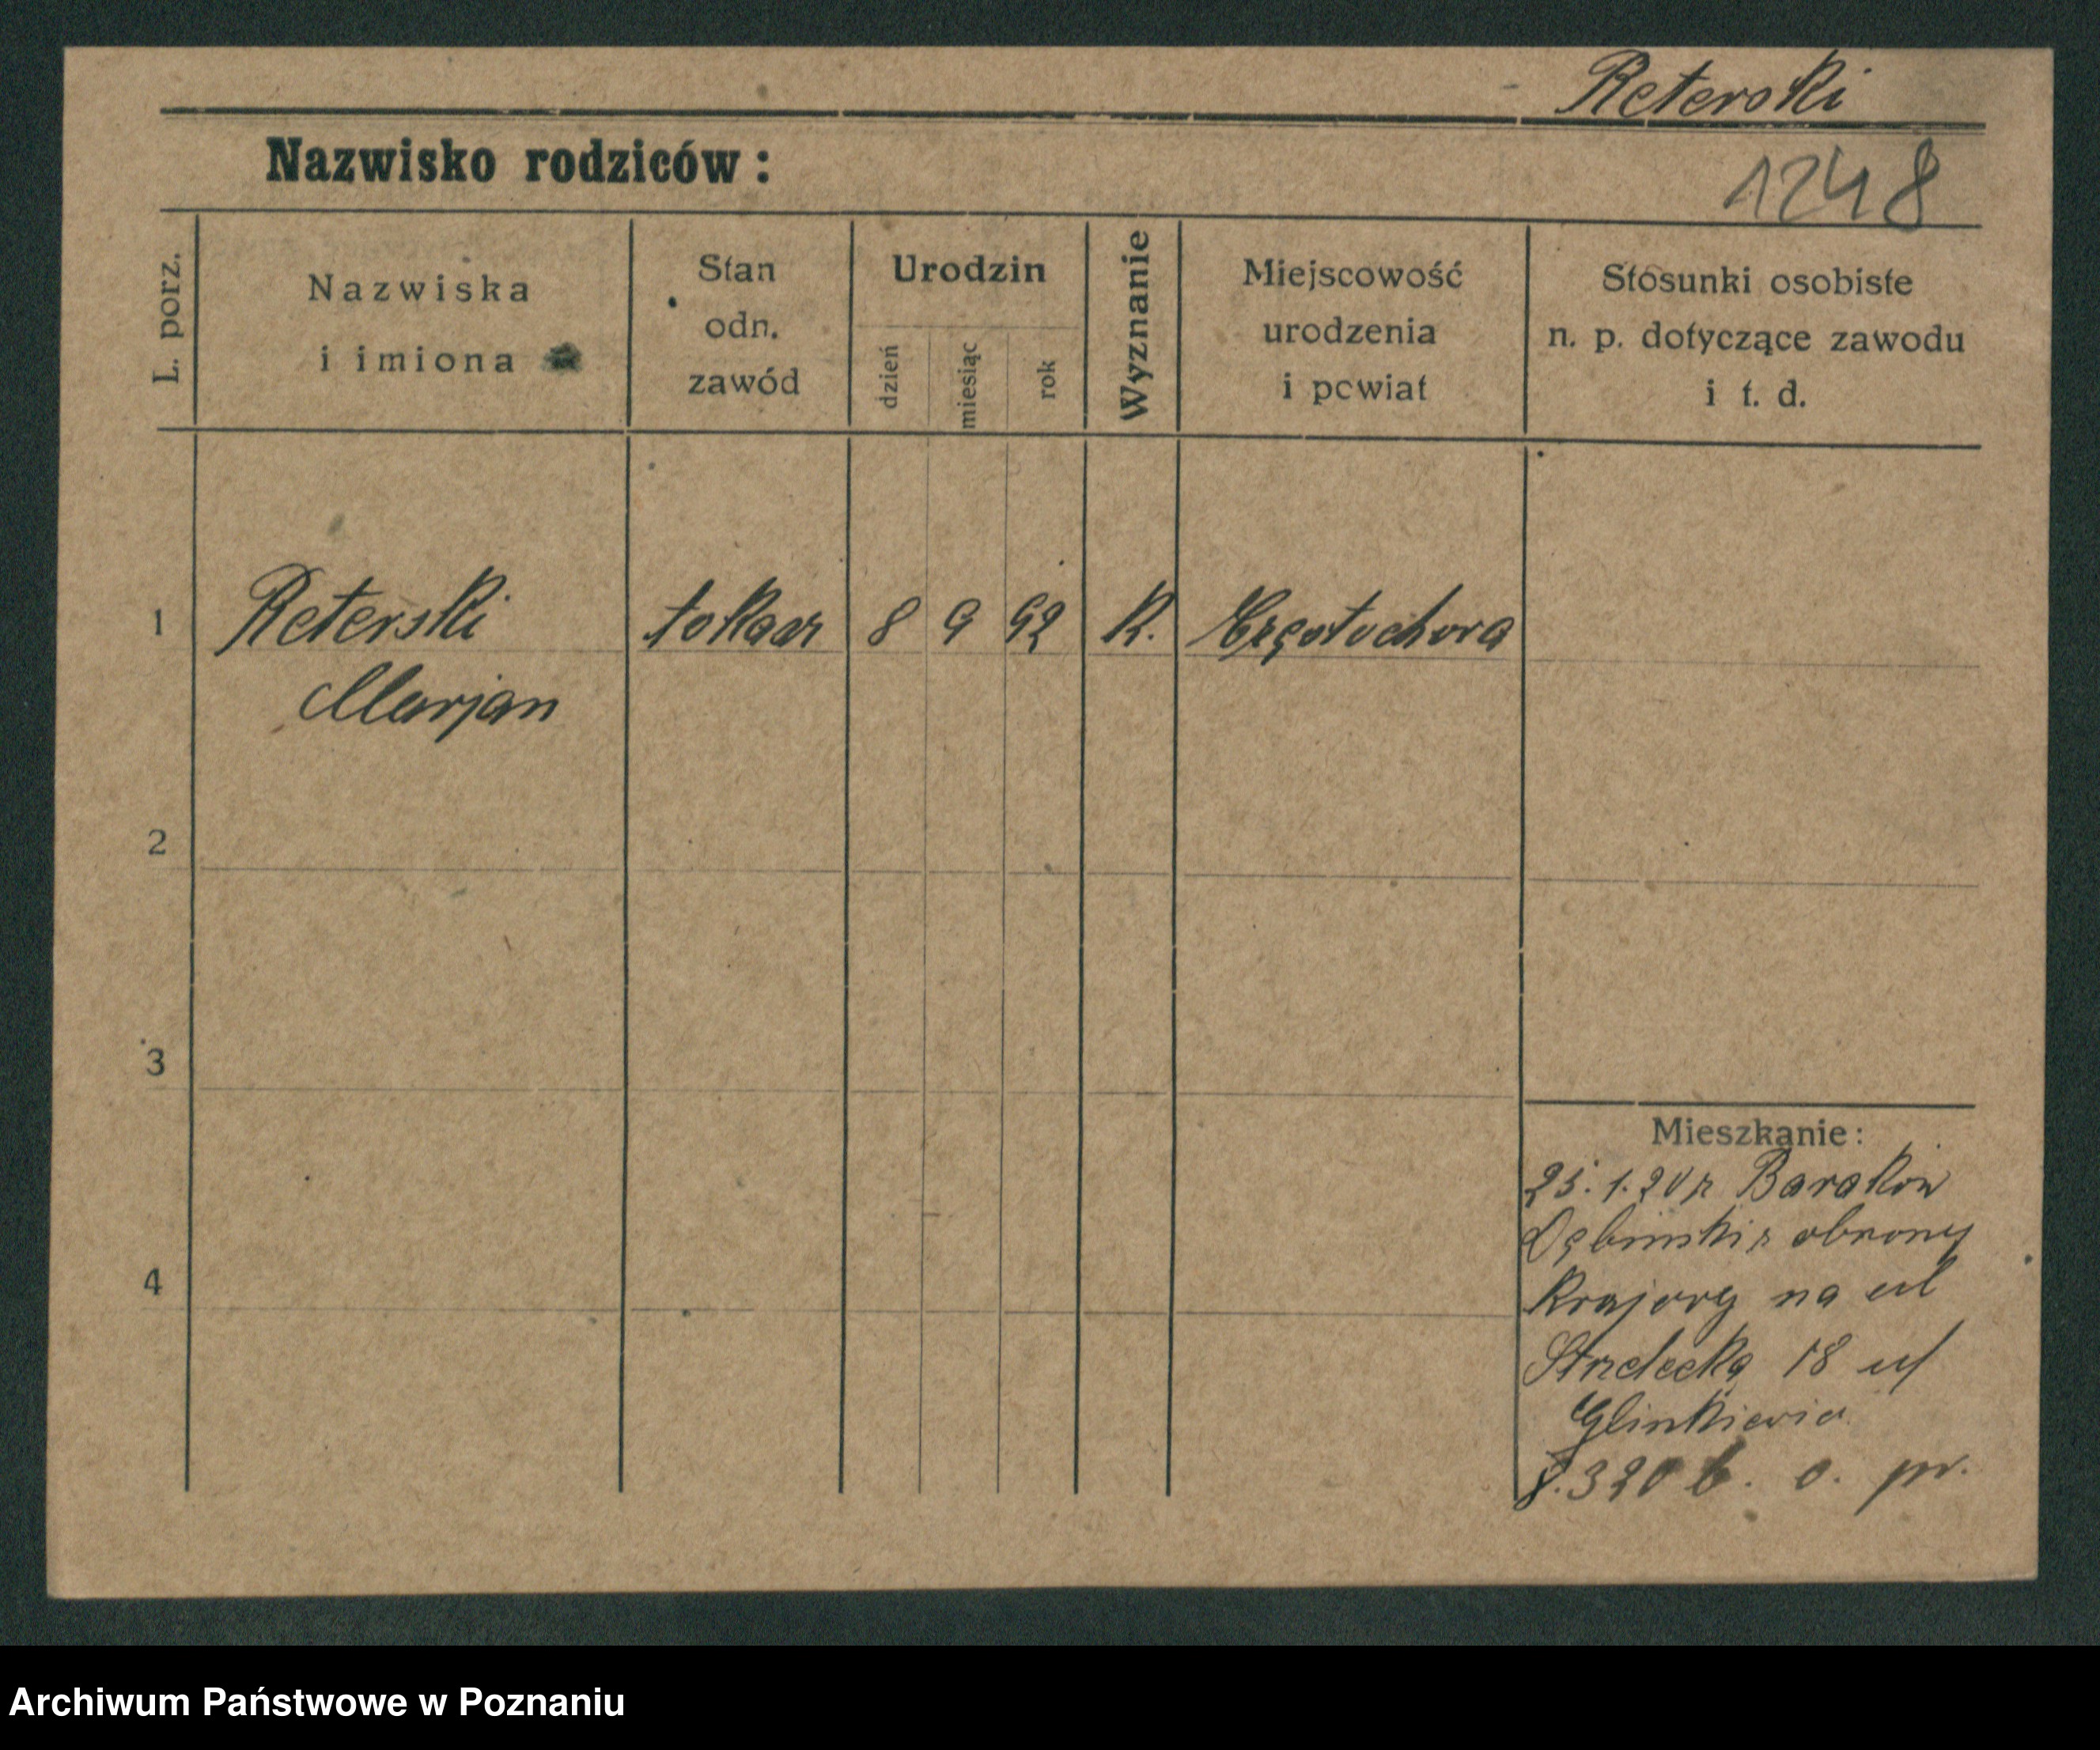 Reterski
1248
Nazwisko rodziców:
L. porz.
Nazwiska
i imiona
Stan
odn.
zawód
Urodzin
dzień
miesiąc
rok
Wyznanie
Miejscowość
urodzenia
i powiat
Stosunki osobiste
n. p. dotyczące zawodu
i t. d.
1
Reterski tokarz 8 9 92 K. Częstochowa
Marjan
2
3
4
Mieszkanie:
25. 1. 20 z Baraków
obrony
Krajowy na ul
Strzelecką 18 u
8. 3 20 b. o. pr.
Archiwum Państwowe w Poznaniu